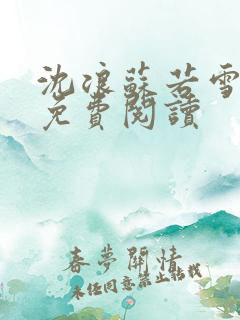 沈浪蘇若雪
免費閱讀
春夢關情
未經同意禁止轉載